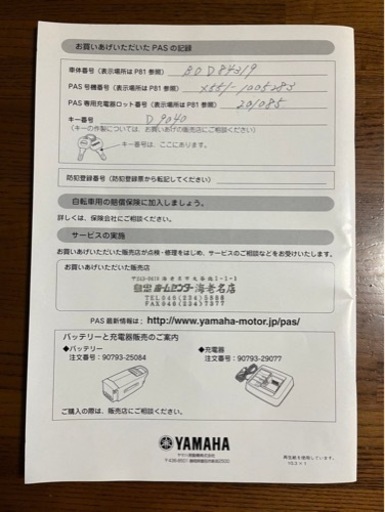 お買いあげいただいた PAS の記録
車体番号（表示場所は P81 参照） BOD84319
PAS 号機番号（表示場所は P81 参照） X551-1005283
PAS 専用充電器ロット番号（表示場所は P81 参照） 201085
キー番号 D9040
（キーの作製については、お買いあげの販売店にご相談ください）
キー番号は、ここにあります。
防犯登録番号（防犯登録票から転記してください）
自転車用の賠償保険に加入しましょう。
詳しくは、保険会社にご相談ください。
サービスの実施
お買いあげいただいた販売店が点検・修理をはじめ、サービスのご相談などをお受けいたします。
お買いあげいただいた販売店
海老名店
TEL 046(234)5888
FAX 046(234)7377
PAS 最新情報は；http://www.yamaha-motor.jp/pas/
バッテリーと充電器販売のご案内
◆バッテリー
注文番号：90793-25084
◆充電器
注文番号：90793-29077
ご購入の際は、販売店にご相談ください。
YAMAHA
ヤマハ発動機株式会社
再生紙を使用しています。